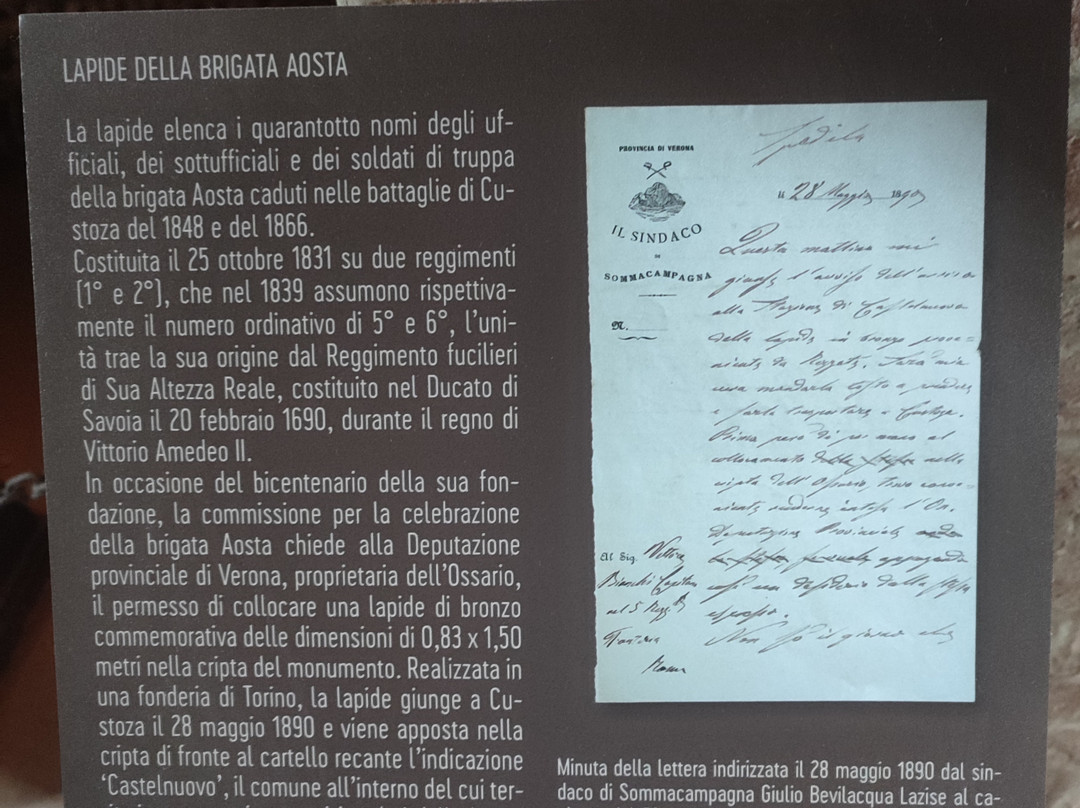 LAPIDE DELLA BRIGATA AOSTA
La lapide elenca i quarantotto nomi degli uf-
ficiali, dei sottufficiali e dei soldati di truppa
della brigata Aosta caduti nelle battaglie di Cu-
stoza del 1848 e del 1866.
Costituita il 25 ottobre 1831 su due reggimenti
(1° e 2°), che nel 1839 assumono rispettiva-
mente il numero ordinativo di 5° e 6°, l'uni-
tà trae la sua origine dal Reggimento fucilieri
di Sua Altezza Reale, costituito nel Ducato di
Savoia il 20 febbraio 1690, durante il regno di
Vittorio Amedeo II.
In occasione del bicentenario della sua fon-
dazione, la commissione per la celebrazione
della brigata Aosta chiede alla Deputazione
provinciale di Verona, proprietaria dell'Ossario,
il permesso di collocare una lapide di bronzo
commemorativa delle dimensioni di 0,83 x 1,50
metri nella cripta del monumento. Realizzata in
una fonderia di Torino, la lapide giunge a Cu-
stoza il 28 maggio 1890 e viene apposta nella
cripta di fronte al cartello recante l'indicazione
'Castelnuovo', il comune all'interno del cui ter-
PROVINCIA DI VERONA
IL SINDACO
DI
SOMMACAMPAGNA
N.
li 28 Maggio 1890
Questa mattina mi
giunse l'avviso dell'arrivo
alla Stazione di Castelnuovo
della lapide in bronzo prove-
e farla trasportare a Custoza.
Prima però di por mano al
collocamento nella
cripta dell'Ossario,
Provinciale
Al Sig.
Bianchi Capitano
nel 5 Regg.
Fanteria
Roma
Non so il giorno che
Minuta della lettera indirizzata il 28 maggio 1890 dal sin-
daco di Sommacampagna Giulio Bevilacqua Lazise al ca-